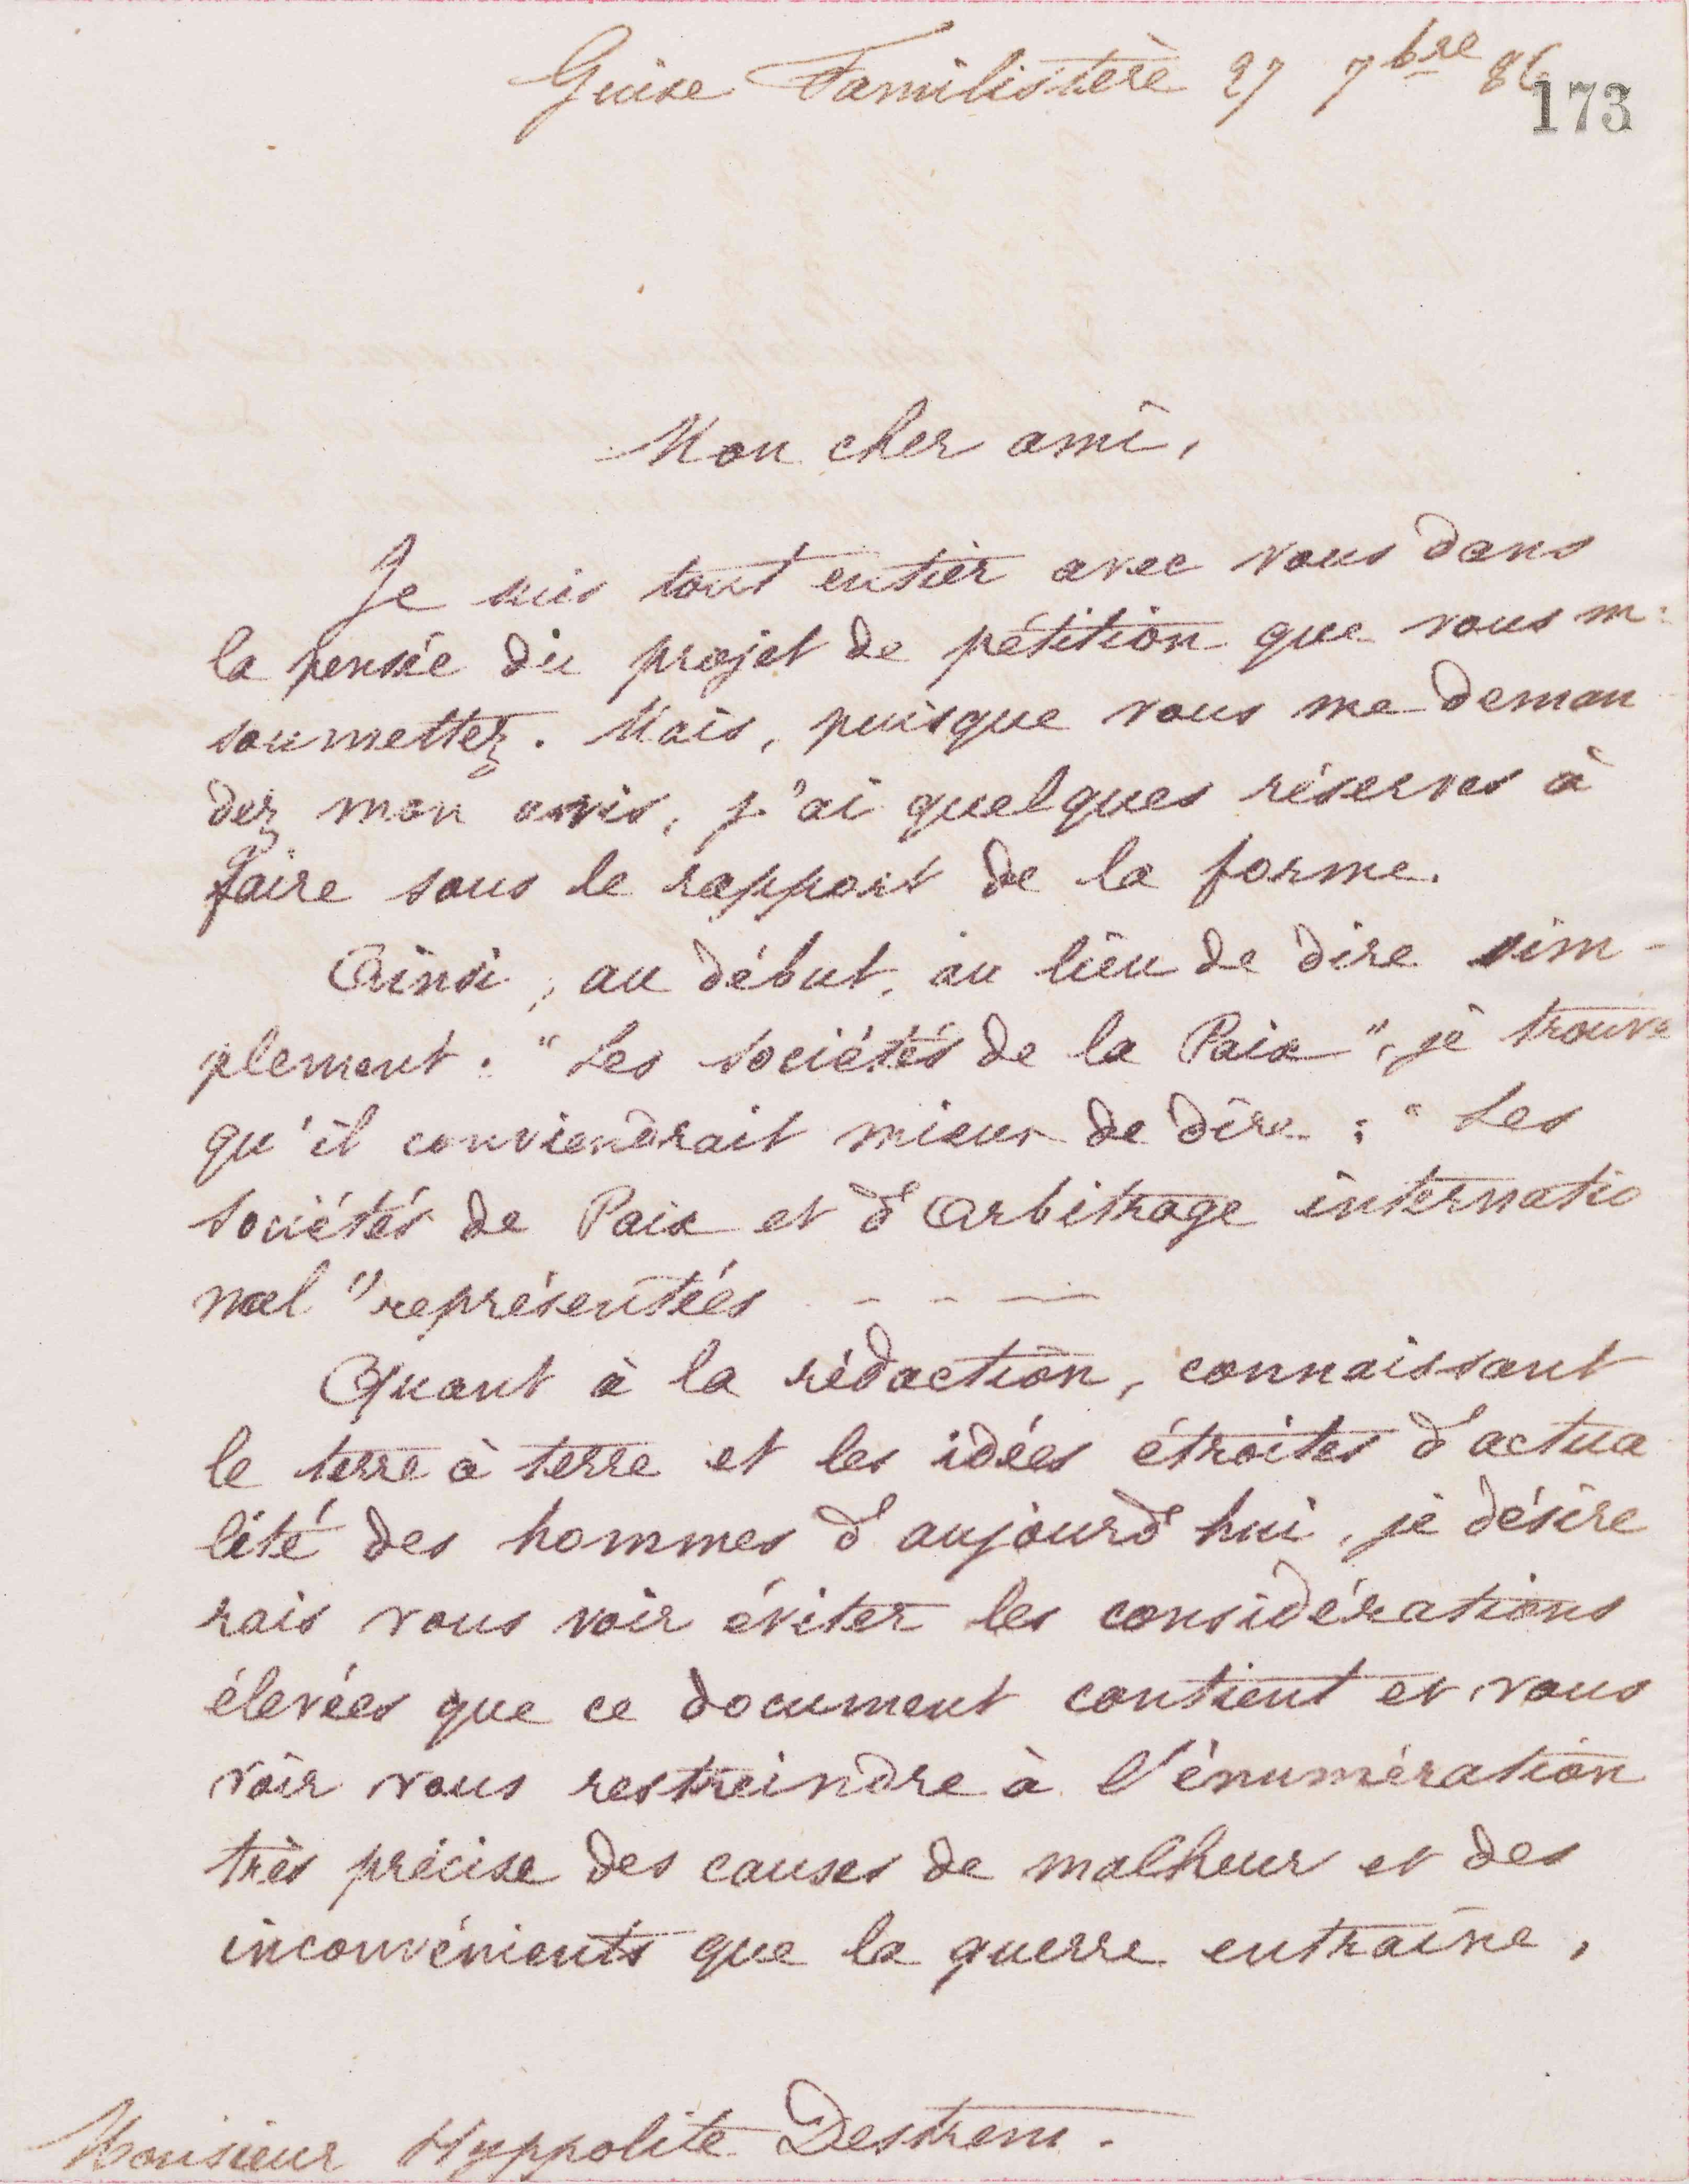 Guise Familistère 27 7bre 86
173
Mon cher ami,
Je suis tout entier avec vous dans
la pensée du projet de pétition que vous me
soumettez. Mais, puisque vous me deman
dez mon avis, j'ai quelques réserves à
faire sous le rapport de la forme.
Ainsi, au début, au lieu de dire sim-
plement : "Les Sociétés de la Paix", je trouve
qu'il conviendrait mieux de dire : "Les
Sociétés de Paix et d'Arbitrage internatio
nal" représentées - - - —
Quant à la rédaction, connaissant
le terre à terre et les idées étroites d'actua
lité des hommes d'aujourd'hui, je désire
rais vous voir éviter les considérations
élevées que ce document contient et vous
voir vous restreindre à l'énumération
très précise des causes de malheur et des
inconvénients que la guerre entraîne,
Monsieur Hyppolite Destrem.